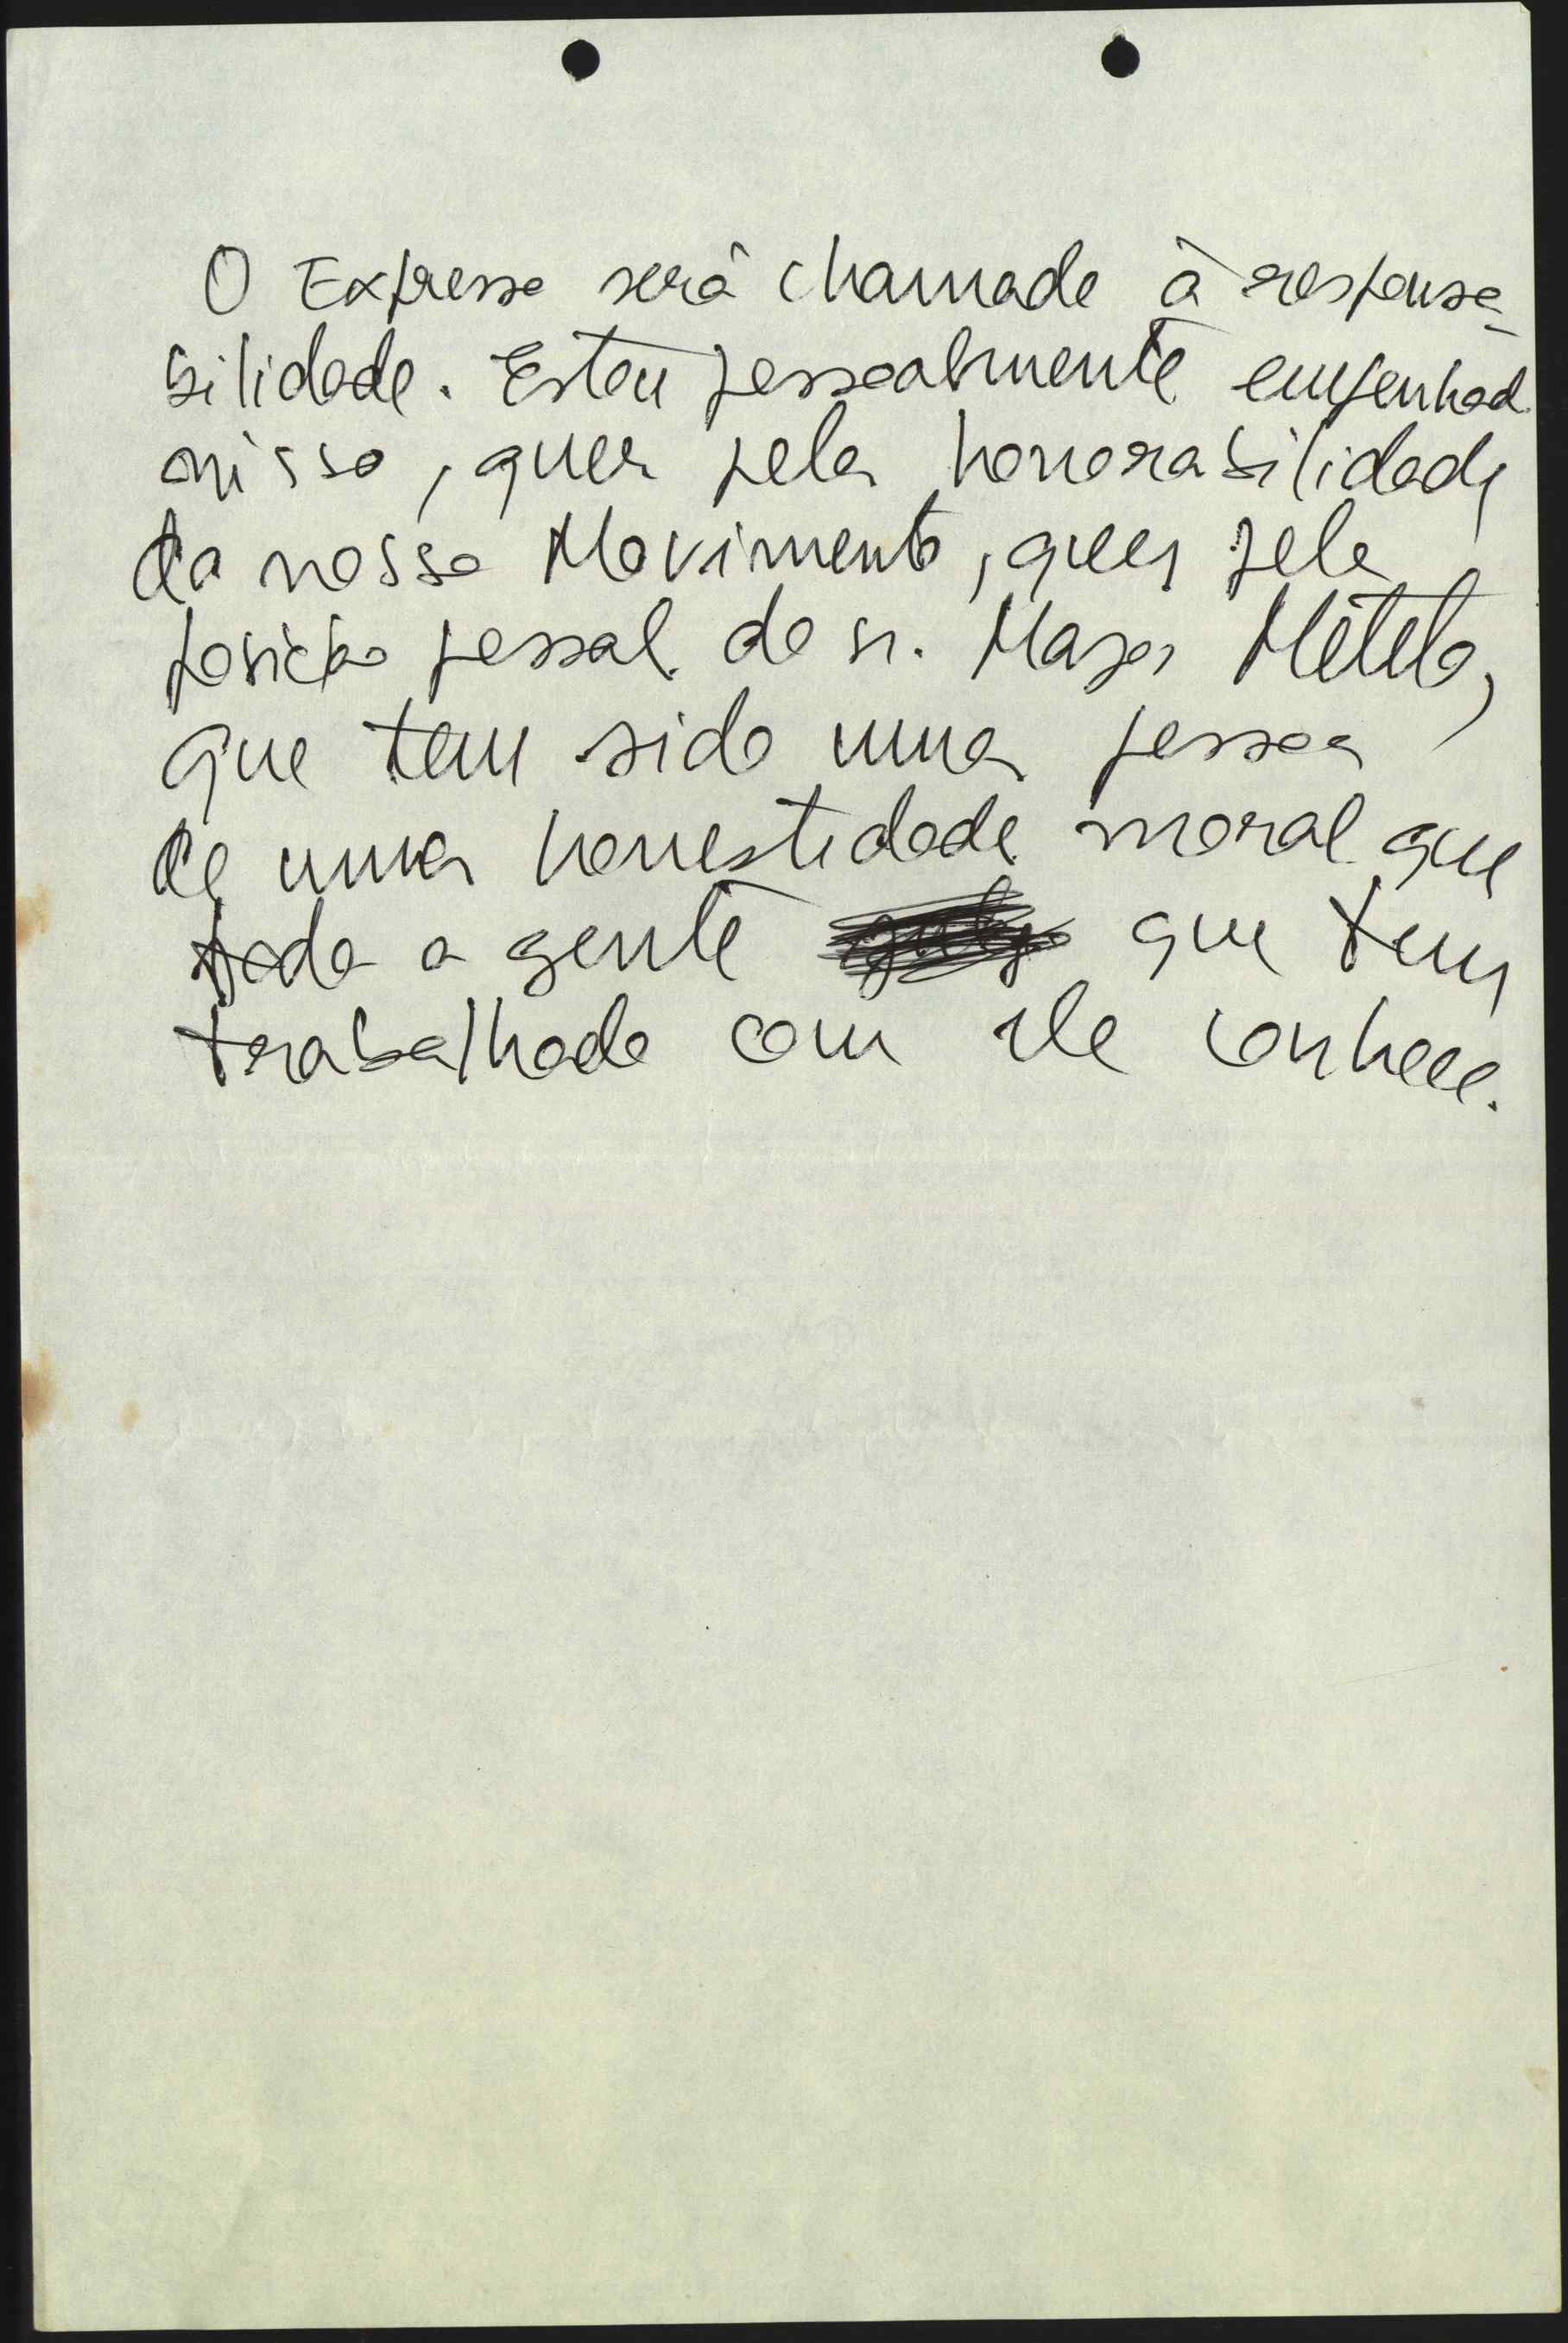 O Expresso será chamado à responsa-
bilidade. Estou pessoalmente empenhad
nisso, quer pela honorabilidade
do nosso Movimento, quer pela
posição pessoal do sr. Major Metelo,
que tem sido uma pessoa
de uma honestidade moral que
toda a gente que tem
trabalhado com ele conhece.